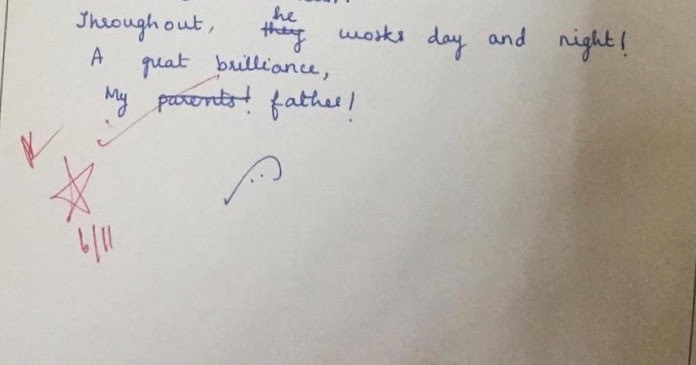 he
Throughout, they works day and night!
A great brilliance,
My parents! father!
6/11